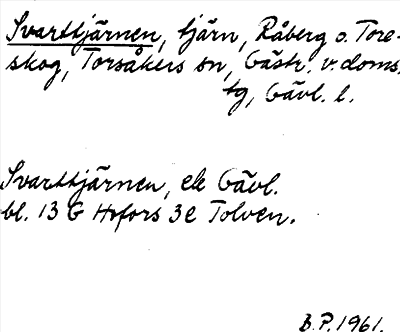 Svarttjärnen, tjärn, Råberg o. Tore-
skog, Torsåkers sn, Gästr. v. doms.
tg, Gävl. l.
Svarttjärnen, ek Gävl.
bl. 13 G Hofors 3e Tolven.
B.P. 1961.